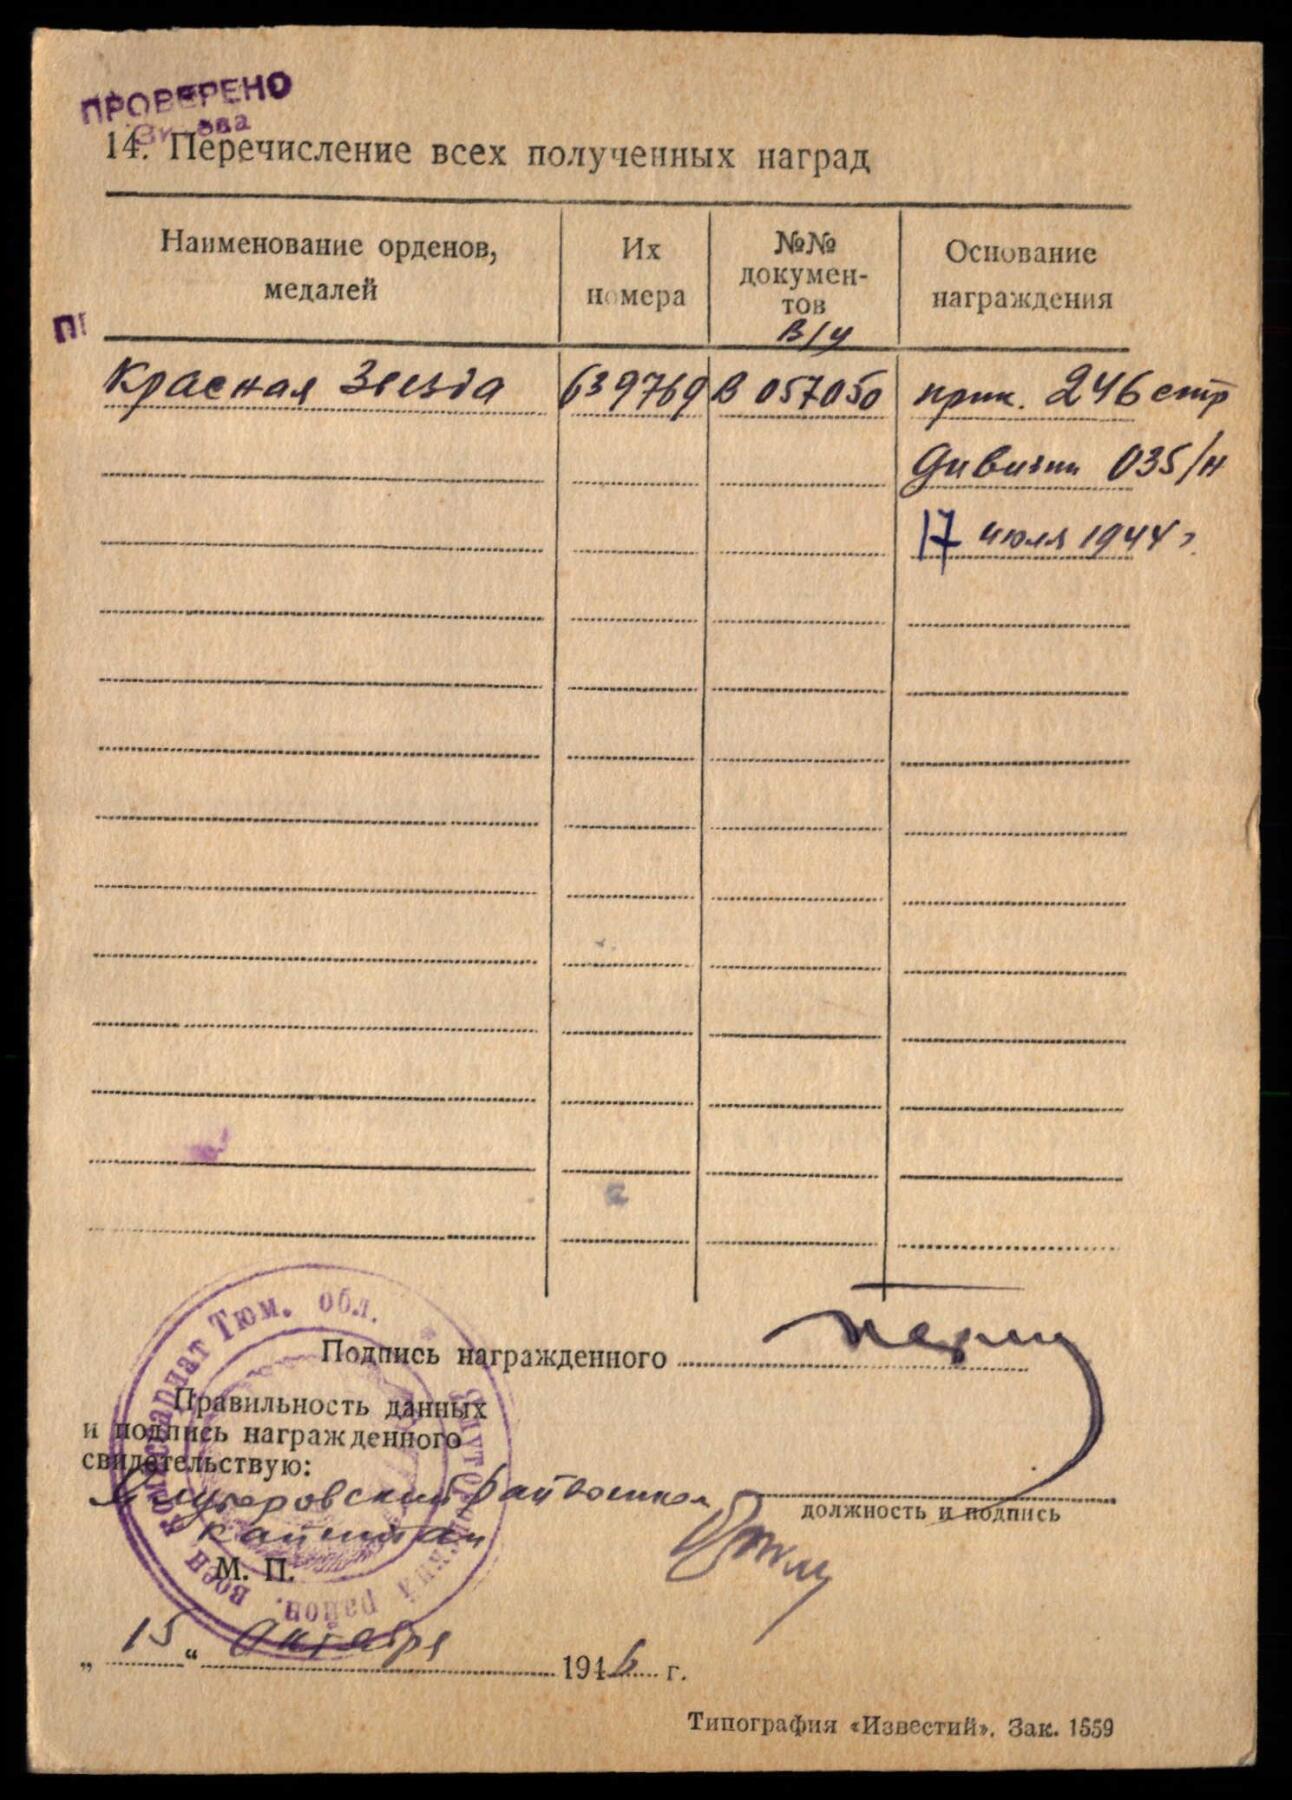 ПРОВЕРЕНО
14. Перечисление всех полученных наград
Наименование орденов, медалей
Их номера
№№ докумен-
тов
в/у
Основание награждения
П
Красная Звезда 639769 В 057050 прик. 246 стр
дивизии 035/н
17 июля 1944 г.
Подпись награжденного
Правильность данных
и подпись награжденного
свидетельствую:
Ялуторовский райвоенком
капитан
должность и подпись
М. П.
Воен Комиссариат Тюм. обл. * Ялуторовский район.
„ 15 “ Октября 1946 г.
Типография «Известий». Зак. 1559